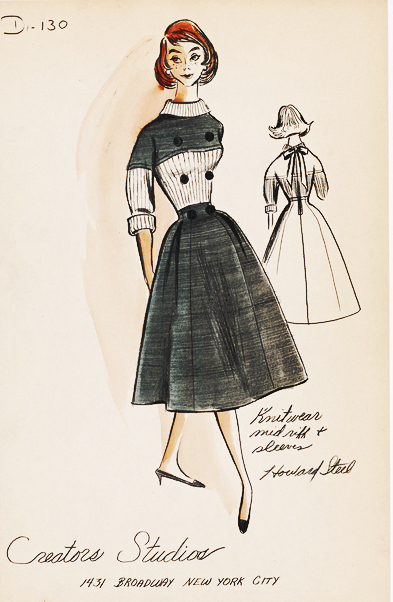 D-130
Knitwear
midriff +
sleeves
Howard Steel
Creators Studios
1431 BROADWAY NEW YORK CITY